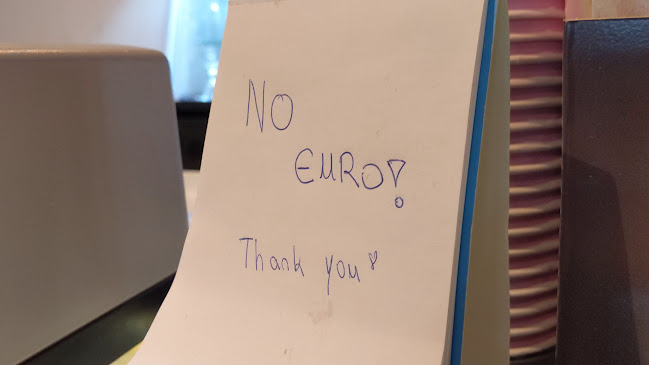 NO
EURO!
Thank you!